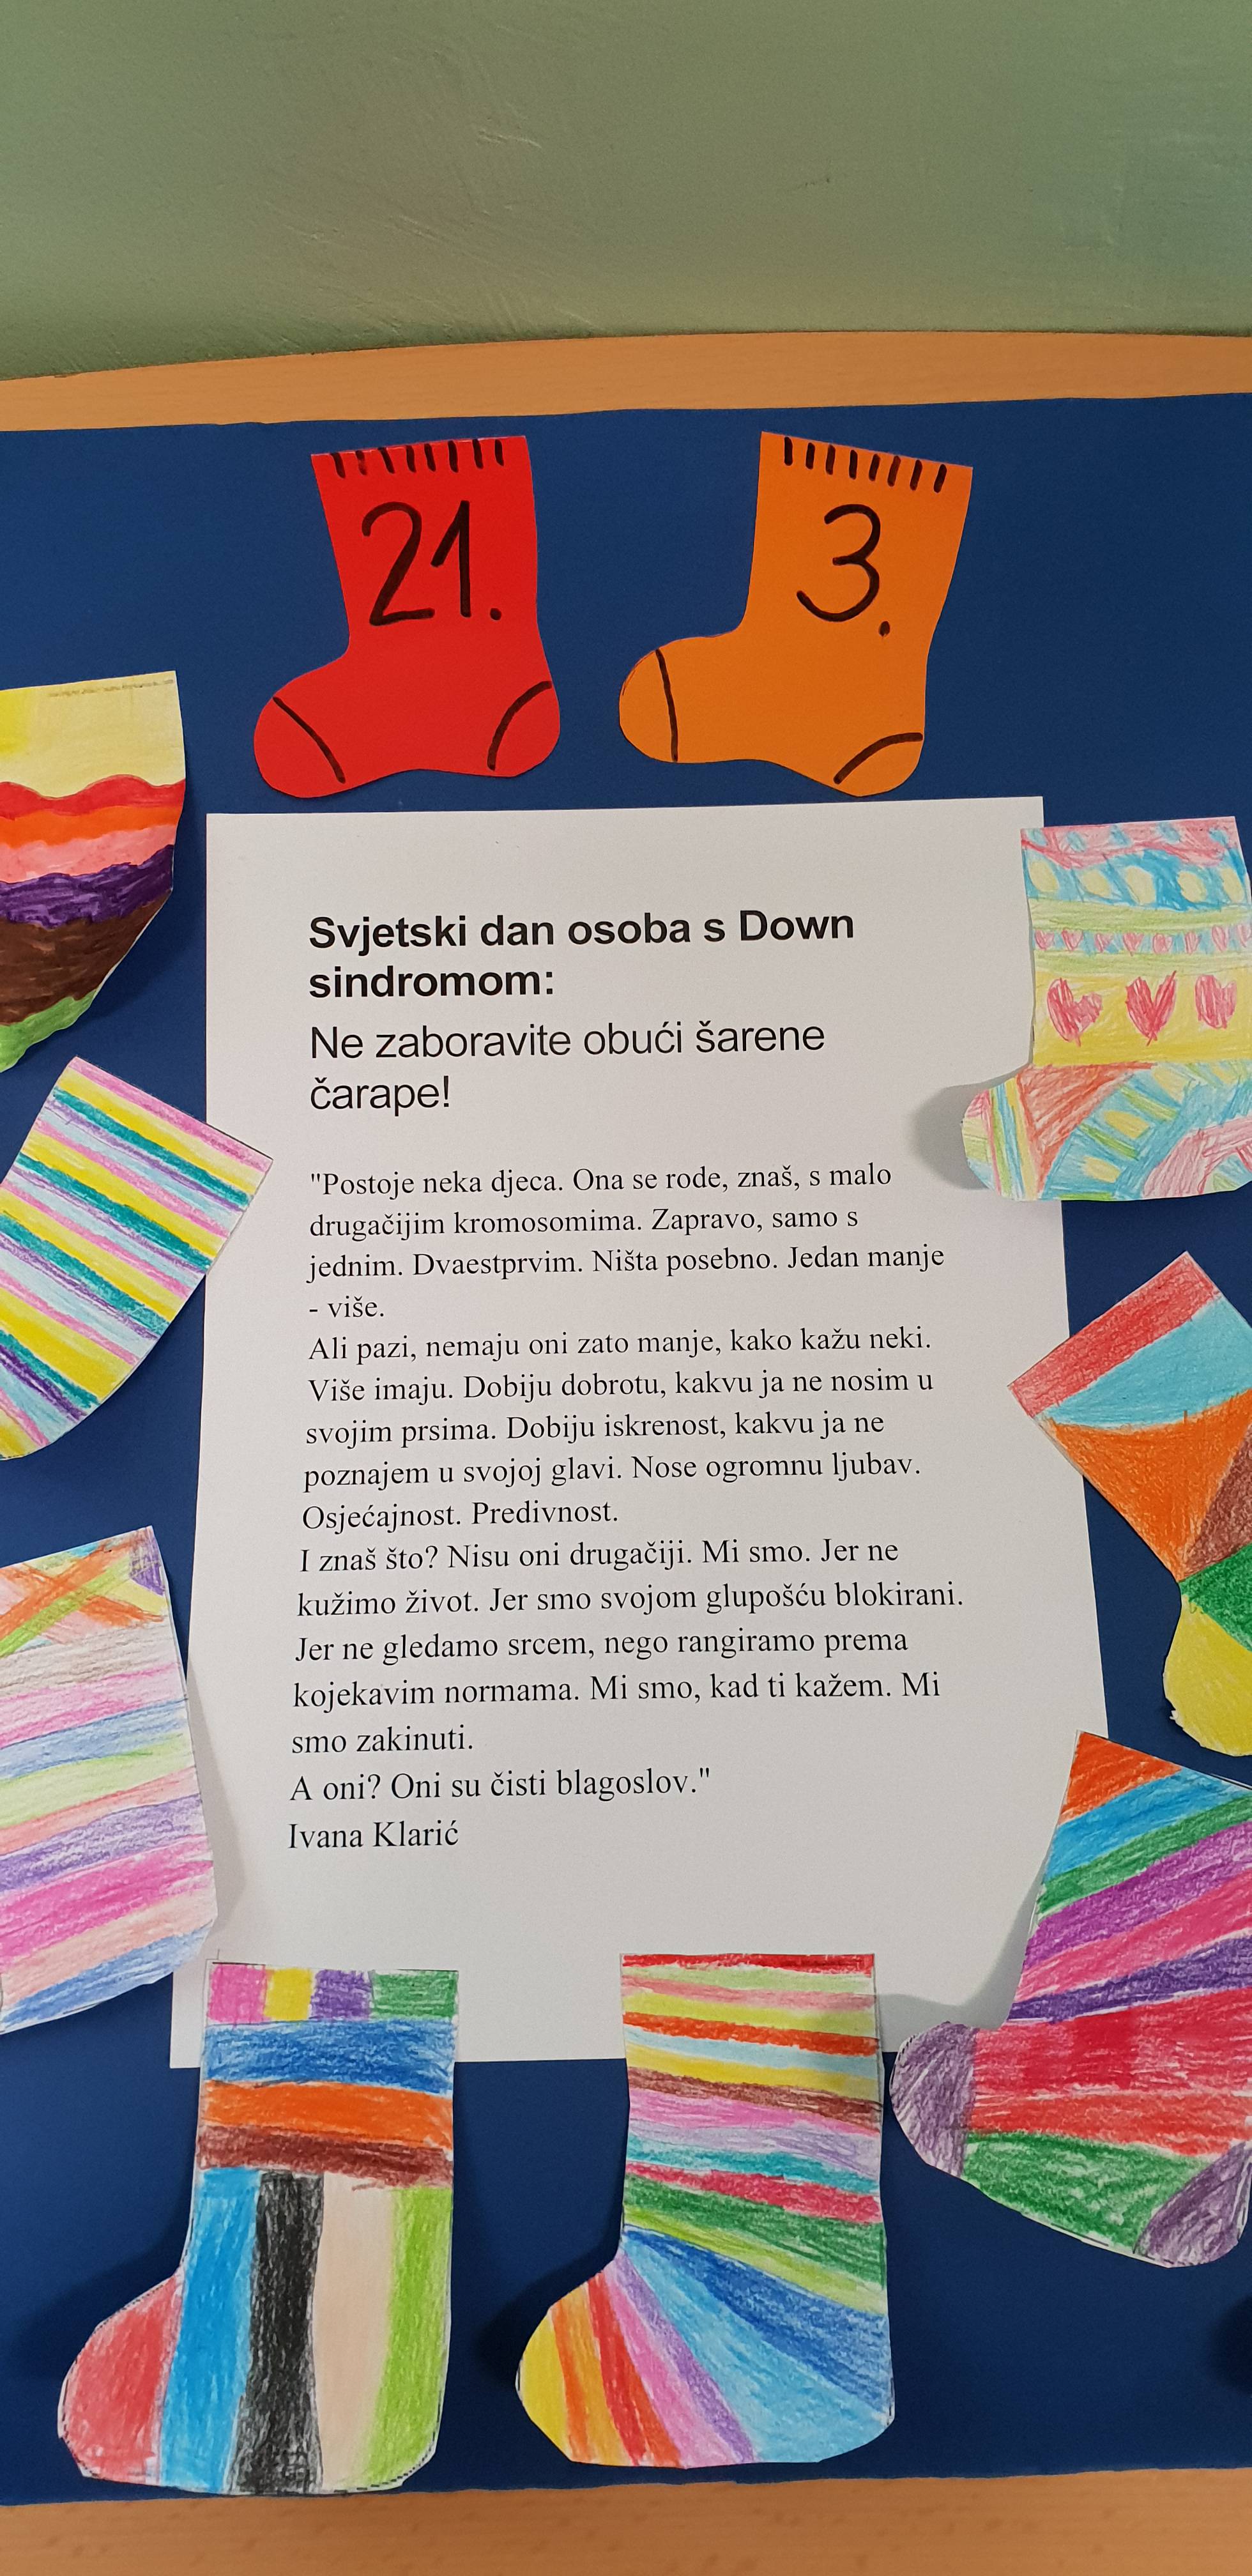 21.
3.
Svjetski dan osoba s Down
sindromom:
Ne zaboravite obući šarene
čarape!
"Postoje neka djeca. Ona se rode, znaš, s malo
drugačijim kromosomima. Zapravo, samo s
jednim. Dvaestprvim. Ništa posebno. Jedan manje
- više.
Ali pazi, nemaju oni zato manje, kako kažu neki.
Više imaju. Dobiju dobrotu, kakvu ja ne nosim u
svojim prsima. Dobiju iskrenost, kakvu ja ne
poznajem u svojoj glavi. Nose ogromnu ljubav.
Osjećajnost. Predivnost.
I znaš što? Nisu oni drugačiji. Mi smo. Jer ne
kužimo život. Jer smo svojom glupošću blokirani.
Jer ne gledamo srcem, nego rangiramo prema
kojekavim normama. Mi smo, kad ti kažem. Mi
smo zakinuti.
A oni? Oni su čisti blagoslov."
Ivana Klarić